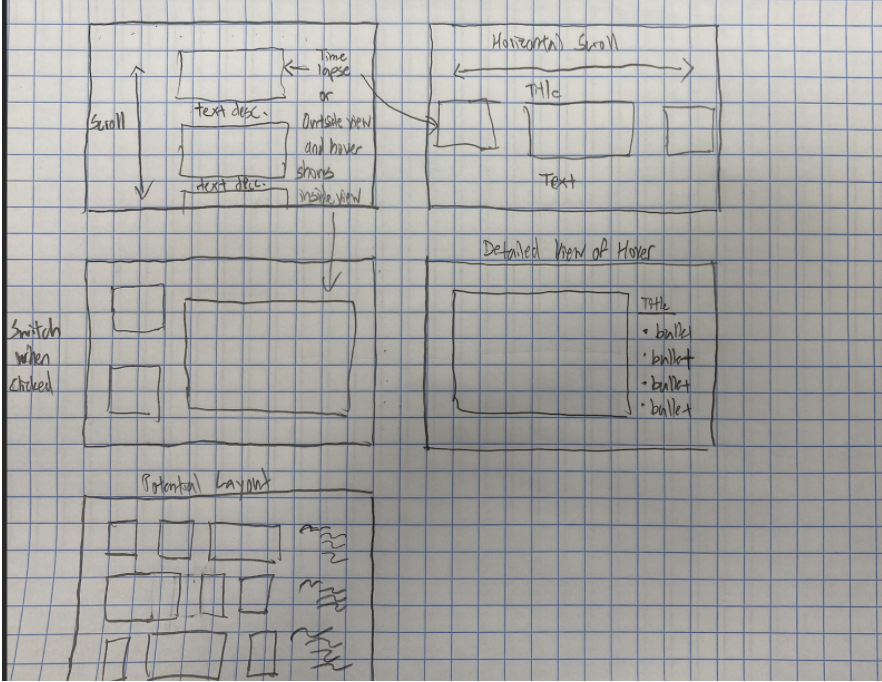 Scroll
text desc.
text desc.
Time
lapse
or
Outside view
and hover
shows
inside view
Horizontal Scroll
Title
Text
Switch
when
clicked
Detailed View of Hover
Title
• bullet
• bullet
• bullet
• bullet
Potential Layout